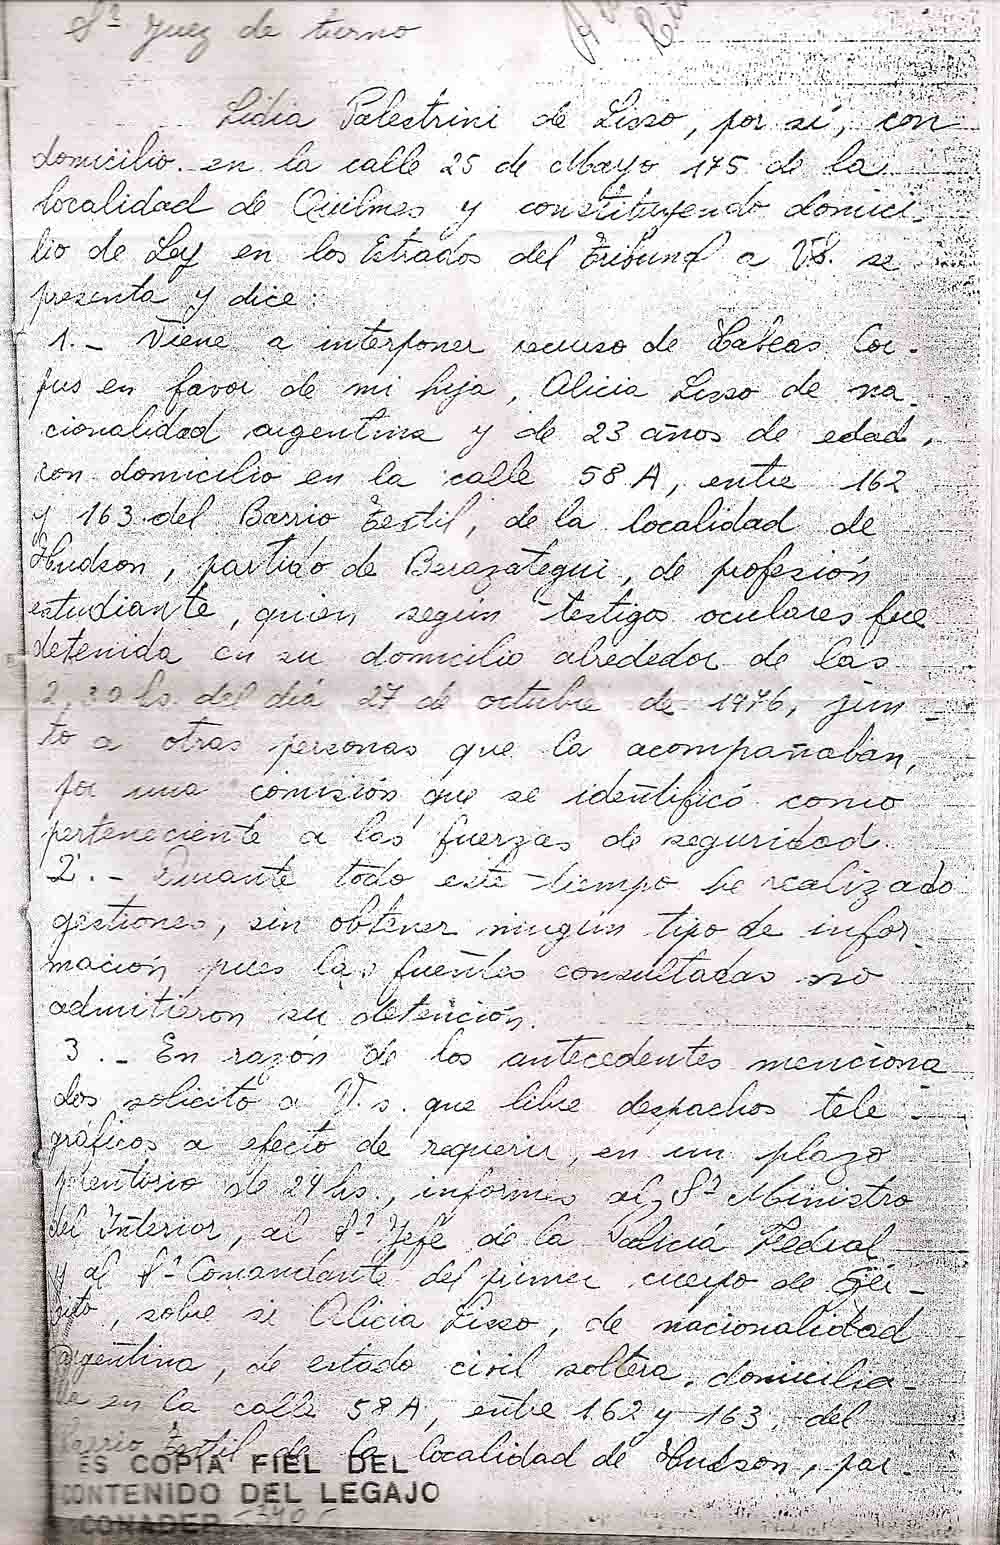 Sr Juez de turno
Lidia Palestrini de Lisso, por sí, con
domicilio en la calle 25 de Mayo 175 de la
localidad de Quilmes y constituyendo domici-
lio de Ley en los Estrados del Tribunal a V.S. se
presenta y dice:
1.- Viene a interponer recurso de Habeas Cor-
pus en favor de mi hija, Alicia Lisso de na-
cionalidad argentina y de 23 años de edad,
con domicilio en la calle 58 A, entre 162
y 163 del Barrio Textil, de la localidad de
Hudson, partido de Berazategui, de profesión
estudiante, quien según testigos oculares fue
detenida en su domicilio alrededor de las
2,30 hs. del día 27 de octubre de 1976, jun-
to a otras personas que la acompañaban,
por una comisión que se identificó como
perteneciente a las fuerzas de seguridad.
2.- Durante todo este tiempo he realizado
gestiones, sin obtener ningún tipo de infor-
mación pues las fuentes consultadas no
admitieron su detención.
3.- En razón de los antecedentes menciona
dos solicito a V.s. que libre despachos tele-
gráficos a efecto de requerir, en un plazo
perentorio de 24 hs., informes al Sr Ministro
del Interior, al Sr Jefe de la Policía Federal
y al Sr Comandante del primer cuerpo de Ejér-
cito, sobre si Alicia Lisso, de nacionalidad
argentina, de estado civil soltera, domicilia-
da en la calle 58 A, entre 162 y 163, del
Barrio Textil de la localidad de Hudson, par-
ES COPIA FIEL DEL
CONTENIDO DEL LEGAJO
CONADEP